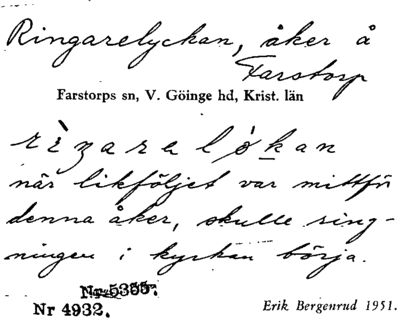 Ringarelyckan, åker å
Farstorp
Farstorps sn, V. Göinge hd, Krist. län
när likföljet var mittför
denna åker, skulle ring-
ningen i kyrkan börja.
Nr 5355.
Nr 4932.
Erik Bergenrud 1951.